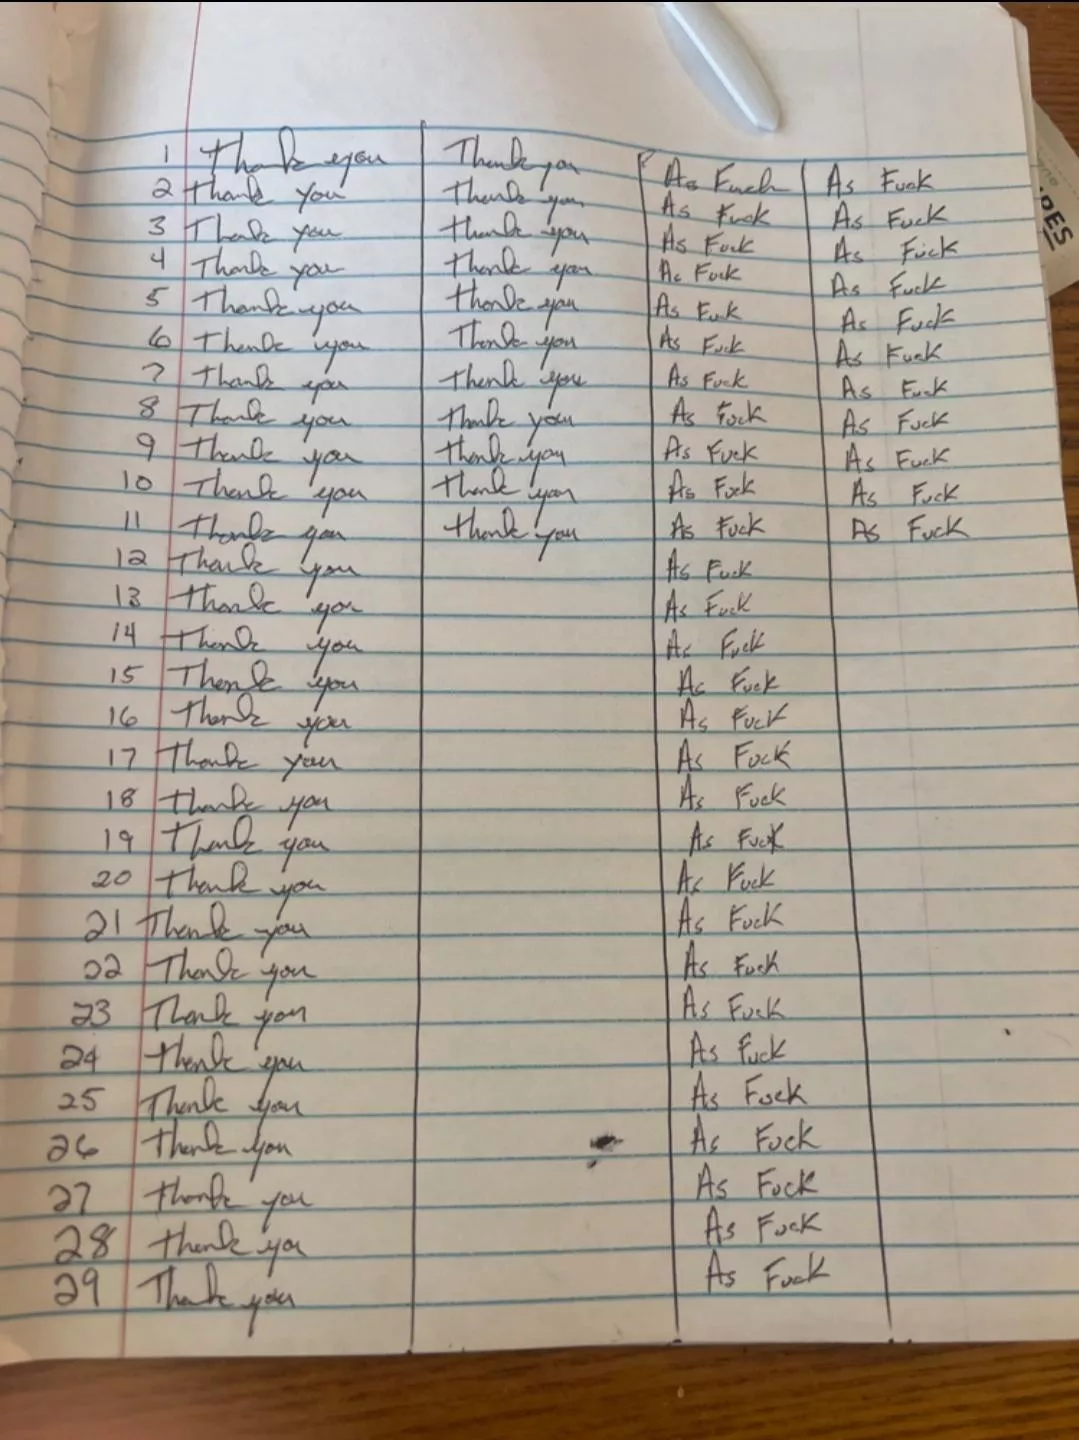 1 Thank you Thank you As Fuck As Fuck
2 Thank you Thank you As Fuck As Fuck
3 Thank you Thank you As Fuck As Fuck
4 Thank you Thank you As Fuck As Fuck
5 Thank you Thank you As Fuk As Fuck
6 Thank you Thank you As Fuck As Fuck
7 Thank you Thank you As Fuck As Fuck
8 Thank you Thank you As Fuck As Fuck
9 Thank you Thank you As Fuck As Fuck
10 Thank you Thank you As Fuck As Fuck
11 Thank you Thank you As Fuck As Fuck
12 Thank you As Fuck
13 Thank you As Fuck
14 Thank you As Fuck
15 Thank you As Fuck
16 Thank you As Fuck
17 Thank you As Fuck
18 Thank you As Fuck
19 Thank you As Fuck
20 Thank you As Fuck
21 Thank you As Fuck
22 Thank you As Fuck
23 Thank you As Fuck
24 Thank you As Fuck
25 Thank you As Fuck
26 Thank you As Fuck
27 Thank you As Fuck
28 Thank you As Fuck
29 Thank you As Fuck